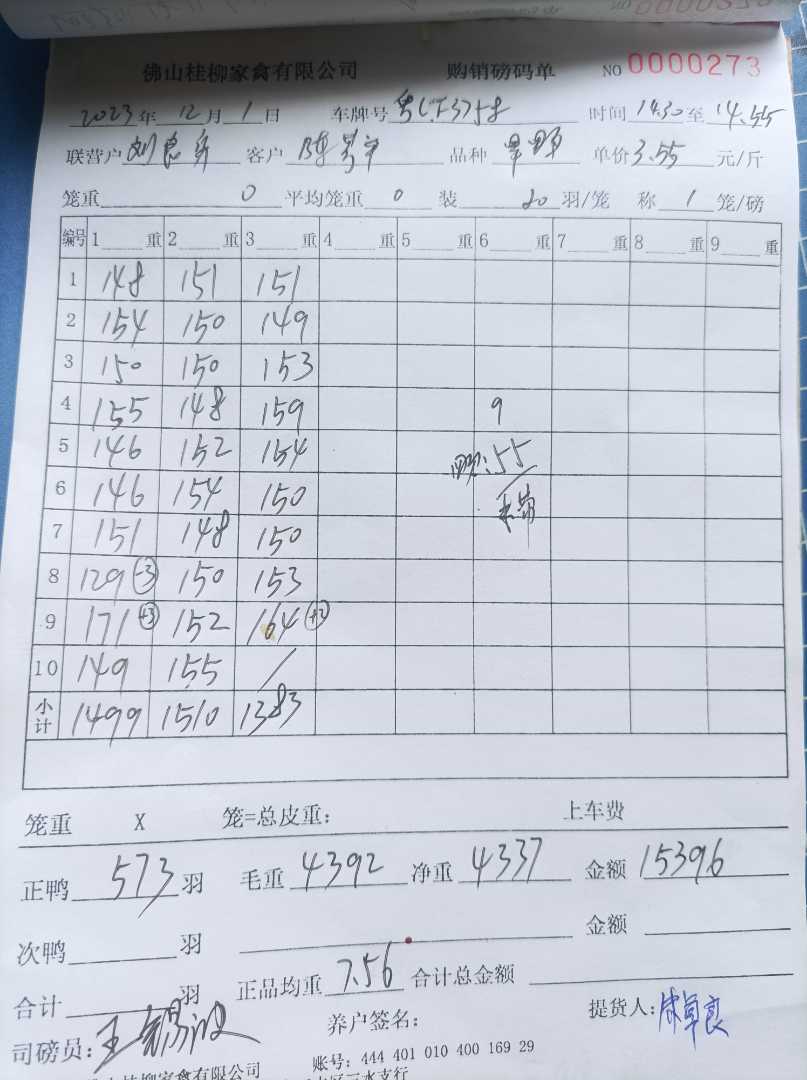 佛山桂柳家禽有限公司 购销磅码单 NO 0000273
2023年 12月 1日 车牌号 时间 14.30至 14.55
联营户 客户 品种 单价3.55元/斤
笼重 0 平均笼重 0 装 20 羽/笼 称 1 笼/磅
编号 1 重 2 重 3 重 4 重 5 重 6 重 7 重 8 重 9 重
1 148 151 151
2 154 150 149
3 150 150 153
4 155 148 159 9
5 146 152 154 55
6 146 154 150
7 151 148 150
8 129 -3 150 153
9 171 +3 152 164 +2
10 149 155 /
小计 1499 1510 1383
笼重 X 笼=总皮重: 上车费
正鸭 573 羽 毛重 4392 净重 4337 金额 15396
次鸭 羽 金额
合计 羽 正品均重 7.56 合计总金额
司磅员: 养户签名: 提货人:
山桂柳家禽有限公司 账号: 444 401 010 400 169 29